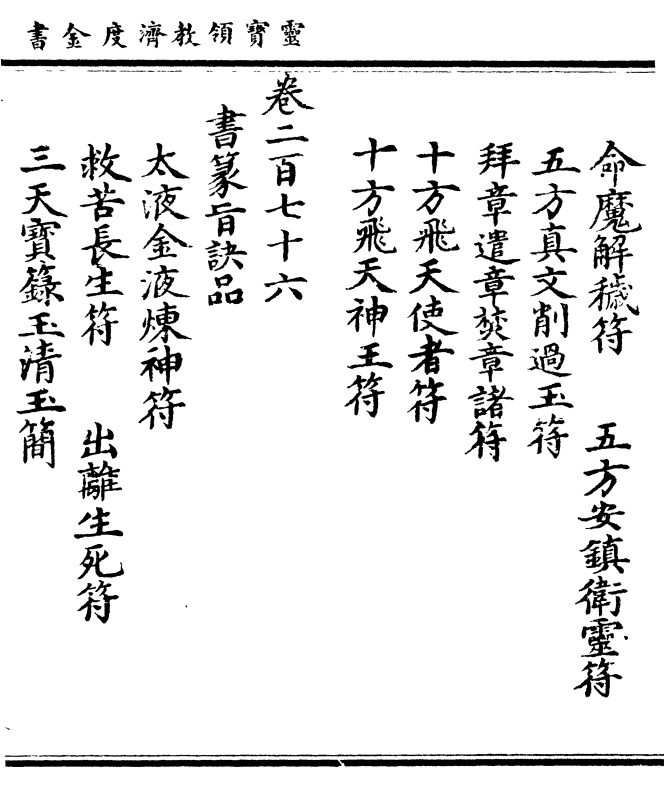 靈寶領教濟度金書
命魔解穢符　五方安鎮衛靈符
五方真文削過玉符
拜章遣章焚章諸符
十方飛天使者符
十方飛天神王符
卷二百七十六
書篆旨訣品
太液金液煉神符
救苦長生符　出離生死符
三天寶籙玉清玉簡